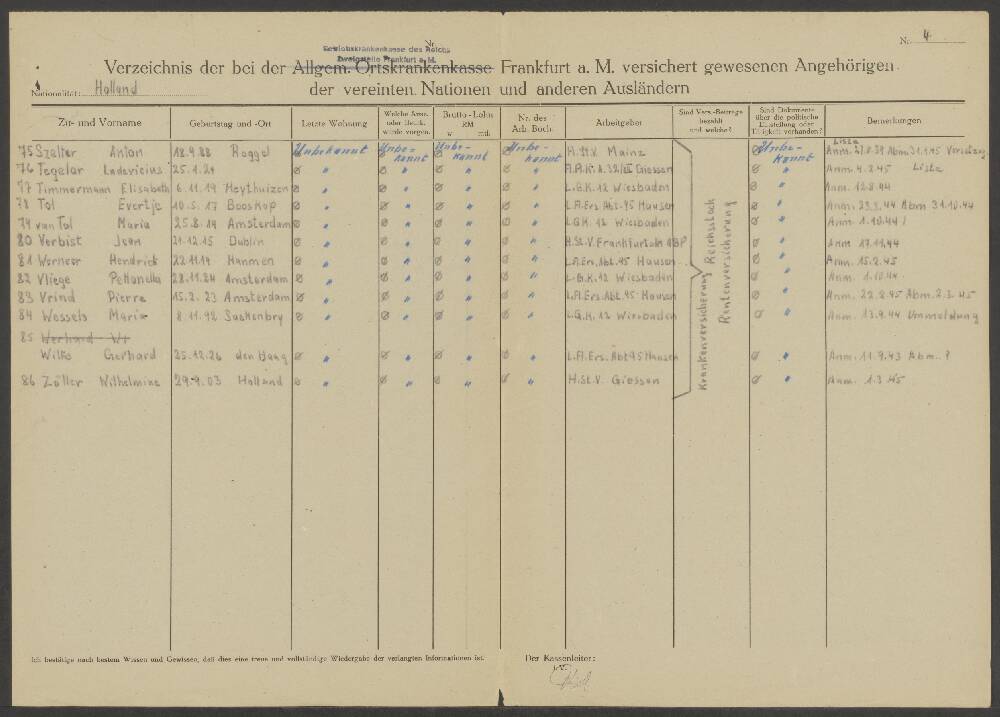 Nr. 4
Betriebskrankenkasse des Reichs
Zweigstelle Frankfurt a. M.
Verzeichnis der bei der Allgem. Ortskrankenkasse Frankfurt a. M. versichert gewesenen Angehörigen
Nationalität: Holland
der vereinten Nationen und anderen Ausländern
Zu- und Vorname Geburtstag und -Ort Letzte Wohnung Welche Arbt. oder Heilk. wurde vorgen. Brutto-Lohn RM w. mtl. Nr. des Arb. Buch. Arbeitgeber Sind Vers.-Beiträge bezahlt und welche? Sind Dokumente über die politische Einstellung oder Tätigkeit vorhanden? Bemerkungen
75 Szelter Anton 12.9.88 Roggel Unbekannt Unbekannt Unbekannt Unbekannt H.St.V. Mainz Unbekannt Anm. 27.8.39 Abm. 31.1.45 Liste
76 Tegelar Ludovicius 25.1.24 " " " " Giessen " Anm. 4.2.45 Liste
77 Timmermann Elisabeth 6.11.19 Heythuizen " " " " L.G.K.12 Wiesbaden " Anm. 12.8.44
78 Tol Evertje 10.5.17 Booskop " " " " L.A.Ers.Abt.95 Hausen " Anm. Abm. 31.10.44
79 van Tol Maria 25.8.14 Amsterdam " " " " L.G.K. 12 Wiesbaden " Anm. 1.10.44
80 Verbist Jean 21.12.15 Dublin " " " " H.St.V. Frankfurt " Anm. 17.11.44
81 Werneer Hendrick 22.11.19 Hanmen " " " " L.A.Ers.Abt.95 Hausen " Anm. 15.2.45
82 Vliege Petronella 28.11.24 Amsterdam " " " " L.G.K.12 Wiesbaden " Anm. 1.10.44
83 Vrind Pierre 15.2.23 Amsterdam " " " " L.A.Ers.Abt.95 Hausen " Anm. 22.2.45 Abm. 2.3.45
84 Wessels Maria 8.11.92 " " " " L.G.K.12 Wiesbaden " Anm. 13.9.44 Ummeldung
85
Wilks Gerhard 25.12.26 den Haag " " " " L.A.Ers.Abt95 Hausen " Anm. 11.9.43 Abm. ?
86 Zöller Wilhelmine 29.9.03 Holland " " " " H.St.V. Giessen " Anm. 1.3.45
Krankenversicherung Reichsstock
Rentenversicherung
Ich bestätige nach bestem Wissen und Gewissen, daß dies eine treue und vollständige Wiedergabe der verlangten Informationen ist. Der Kassenleiter: